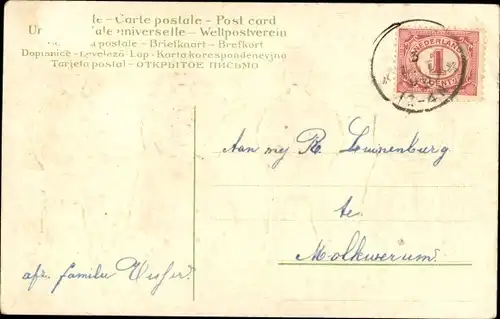 te - Carte postale - Post card
Un ale universelle - Weltpostverein
postale - Briefkaart - Brefkort
Dopisnice - Levelező Lap - Karta korespondencyjna
Tarjeta postal - ОТКРЫТОЕ ПИСЬМО
NEDERLAND
1
CENT
12-4N
Aan mej R. Luinenburg
te
Molkwerum.
afz. familie Visser.